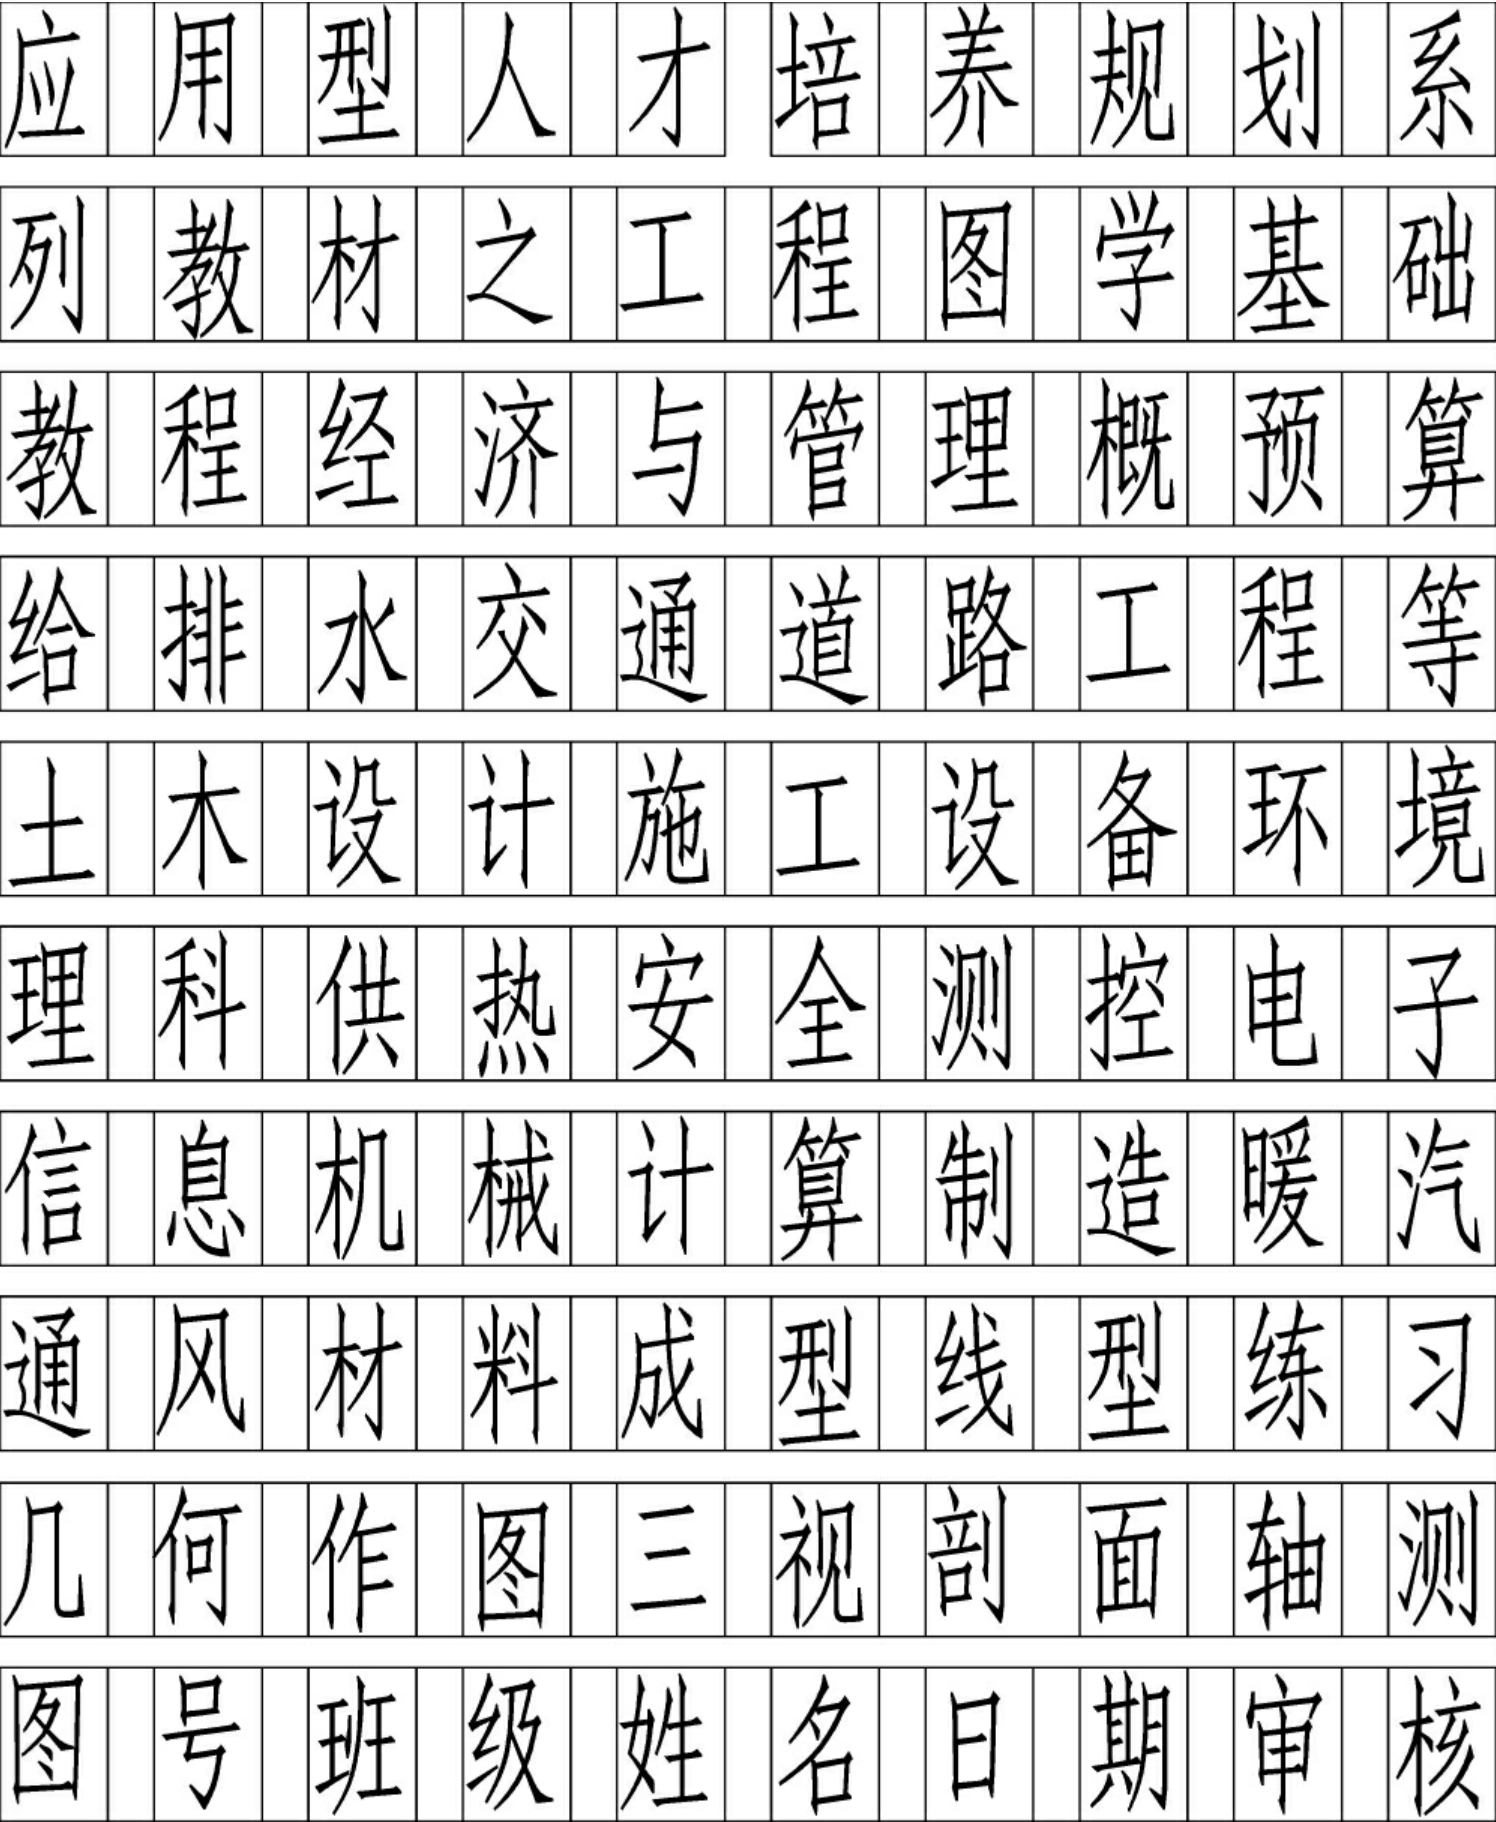 应用型人才培养规划系
列教材之工程图学基础
教程经济与管理概预算
给排水交通道路工程等
土木设计施工设备环境
理科供热安全测控电子
信息机械计算制造暖汽
通风材料成型线型练习
几何作图三视剖面轴测
图号班级姓名日期审核